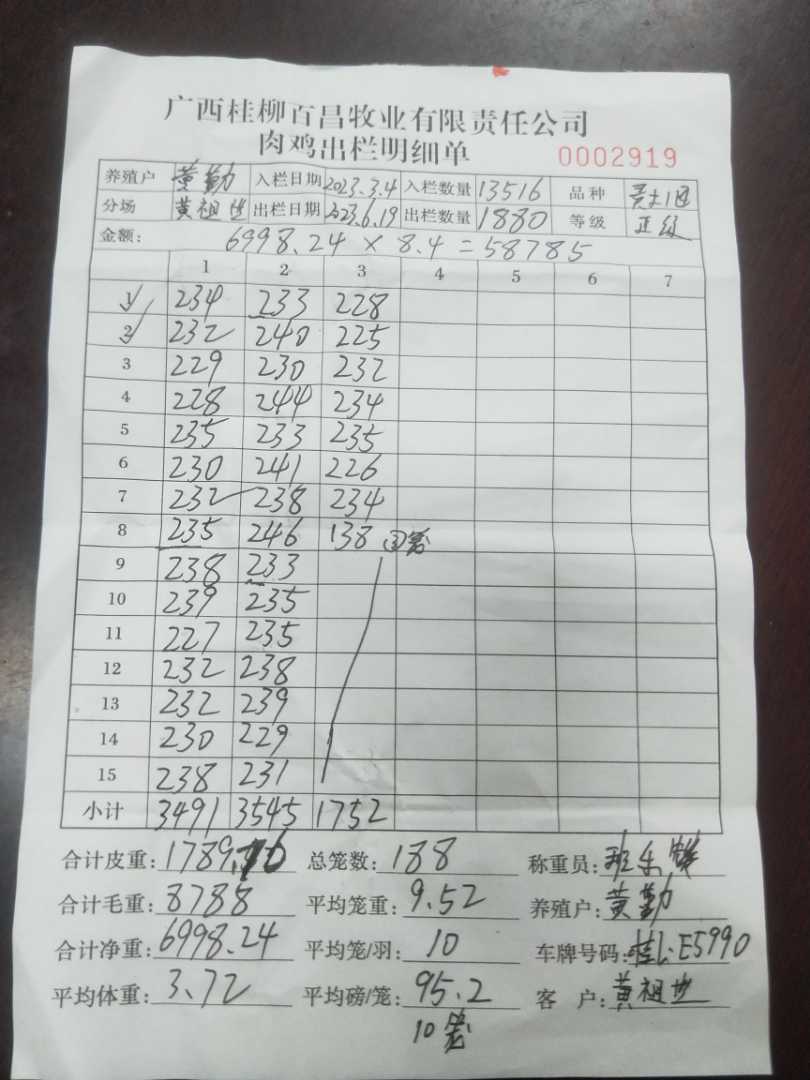 广西桂柳百昌牧业有限责任公司
肉鸡出栏明细单
0002919
养殖户 黄勤 入栏日期 2023.3.4 入栏数量 13516 品种
分场 黄祖世 出栏日期 2023.6.19 出栏数量 1880 等级 正级
金额: 6998.24 × 8.4 = 58785
1 2 3 4 5 6 7
1 234 233 228
2 232 240 225
3 229 230 232
4 228 244 234
5 235 233 235
6 230 241 226
7 232 238 234
8 235 246 138
9 238 233
10 239 235
11 227 235
12 232 238
13 232 239
14 230 229
15 238 231
小计 3491 3545 1752
合计皮重: 1789.76 总笼数: 188 称重员:
合计毛重: 8788 平均笼重: 9.52 养殖户: 黄勤
合计净重: 6998.24 平均笼/羽: 10 车牌号码: 桂L·E5990
平均体重: 3.72 平均磅/笼: 95.2 客户: 黄祖世
10笼